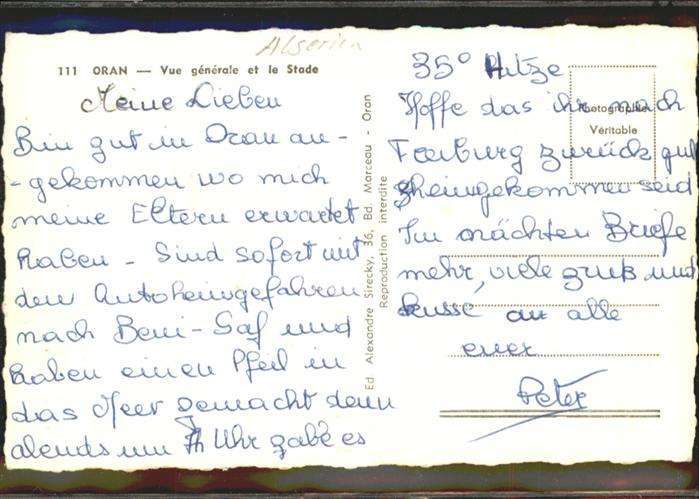 Algerien
111 ORAN — Vue générale et le Stade
Meine Lieben
Bin gut in Oran an-
-gekommen wo mich
meine Eltern erwartet
haben - Sind sofort mit
dem Autoheimgefahren
nach Beni-Saf und
haben einen Pfeil in
das Meer gemacht denn
abends um 7h Uhr gabe es
Ed Alexandre Sirecky, 36, Bd. Marceau - Oran
Reproduction interdite
35° Hitze
Hoffe das ihr nach
Freiburg zurück gut
heimgekommen seid
Im nächten Briefe
mehr, viele gruß und
kusse an alle
euer
Peter
Photographie
Véritable